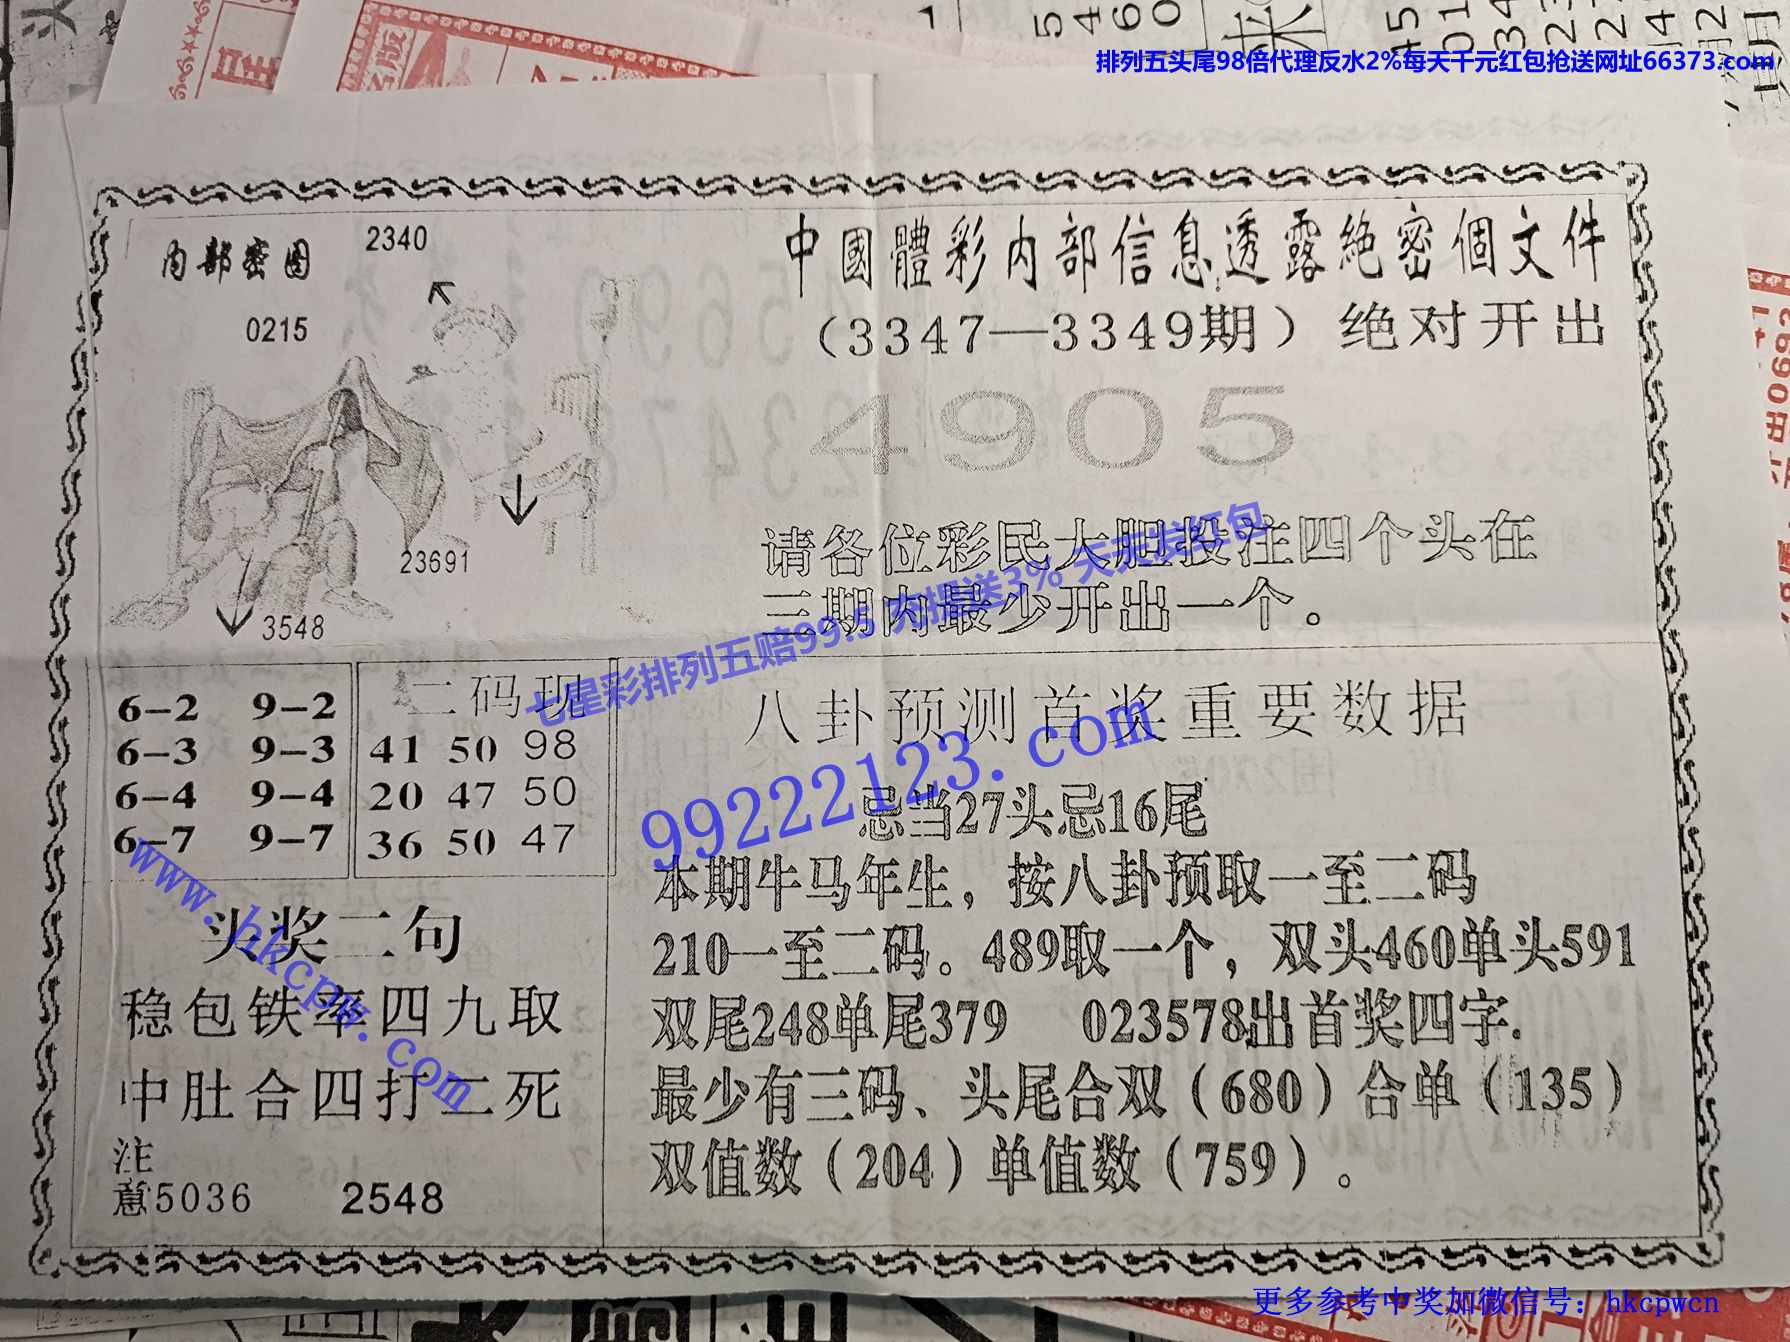 排列五头尾98倍代理反水2%每天千元红包抢送网址66373.com
中國體彩内部信息透露絶密個文件
（3347—3349期）绝对开出
4905
请各位彩民大胆投注四个头在
三期内最少开出一个。
内部密图
2340
0215
23691
3548
七星彩排列五赔99.5 充提送3% 天天发红包
99222123.com
www.hkcpw.com
6–2 9–2
6–3 9–3
6–4 9–4
6–7 9–7
二码现
41 50 98
20 47 50
36 50 47
头奖二句
稳包铁率四九取
中肚合四打二死
注
意5036 2548
八卦预测首奖重要数据
忌当27头忌16尾
本期牛马年生，按八卦预取一至二码
210一至二码。489取一个，双头460单头591
双尾248单尾379 023578出首奖四字.
最少有三码、头尾合双（680）合单（135）
双值数（204）单值数（759）。
更多参考中奖加微信号：hkcpwcn